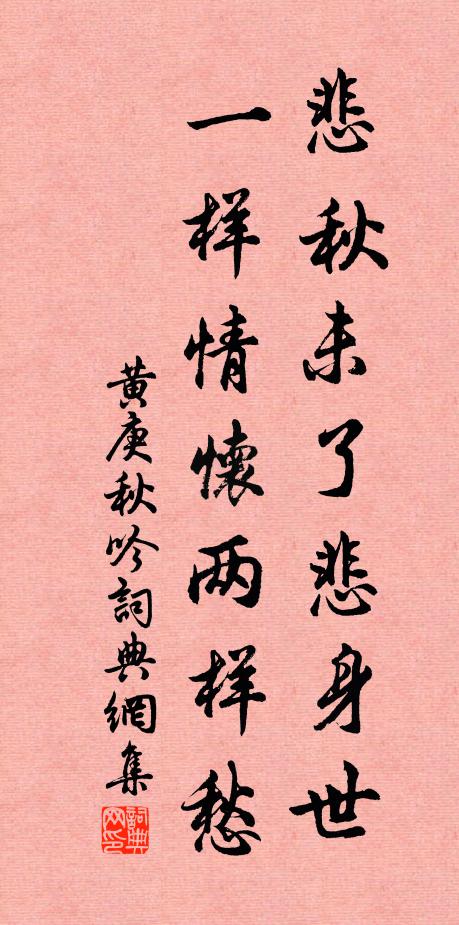 悲秋未了悲身世
一样情懷两样愁
黄庚秋吟詞典網集
詞典网印